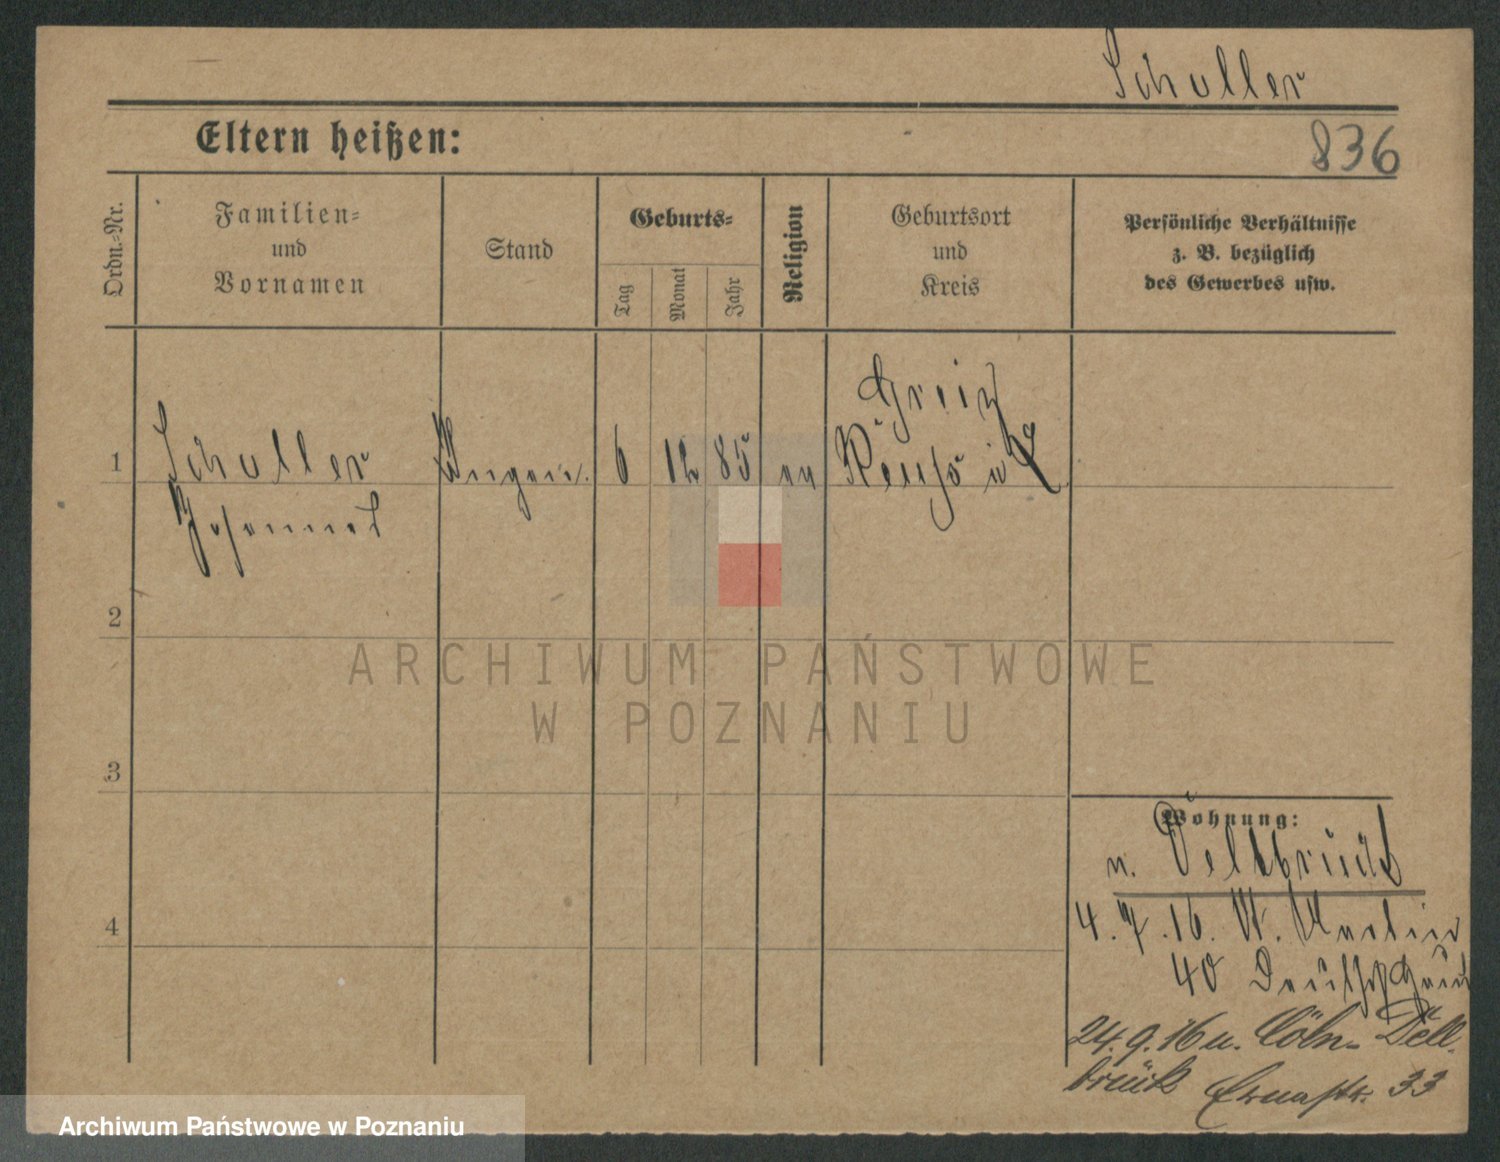 Schuller
Eltern heißen:
836
Ordn.-Nr.
Familien-
und
Vornamen
Stand
Geburts-
Tag
Monat
Jahr
Religion
Geburtsort
und
Kreis
Persönliche Verhältnisse
z. B. bezüglich
des Gewerbes usw.
Greiz
1 Schuller 6 12 85 Reuß
Johannes
2
3
4
ARCHIWUM PAŃSTWOWE
W POZNANIU
Wohnung:
n. Dellbrück
4.7.16. St. Martin
40
24.9.16 n. Cöln-Dell-
brück 33
Archiwum Państwowe w Poznaniu